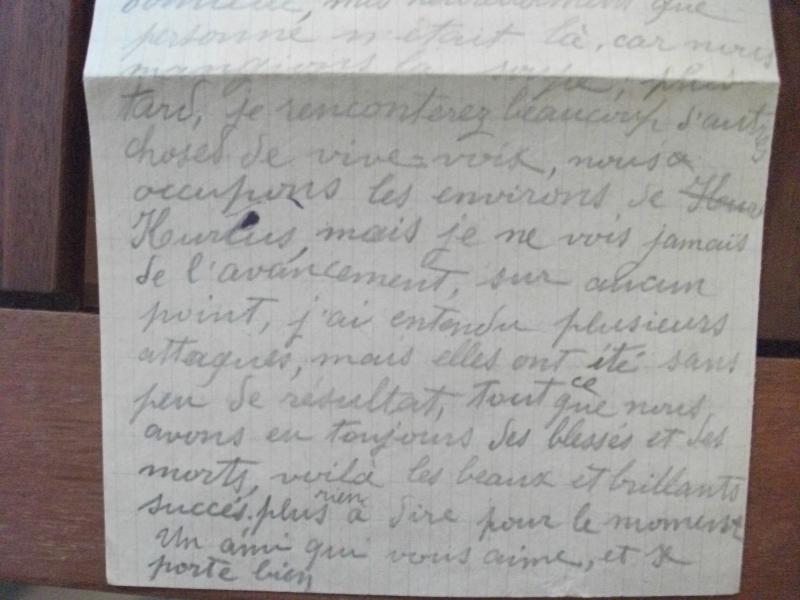 mais heureusement que
personne n'était là, car nous
mangions la soupe, plus
tard, je rencontrerez beaucoup d'autres
choses de vive=voix, nous
occupons les environs de Hur
Hurlus, mais je ne vois jamais
de l'avancement, sur aucun
point, j'ai entendu plusieurs
attaques, mais elles ont été sans
peu de résultat, tout ce que nous
avons eu toujours des blessés et des
morts, voilà les beaux et brillants
succés. plus rien à dire pour le moment
Un ami qui vous aime, et se
porte bien,